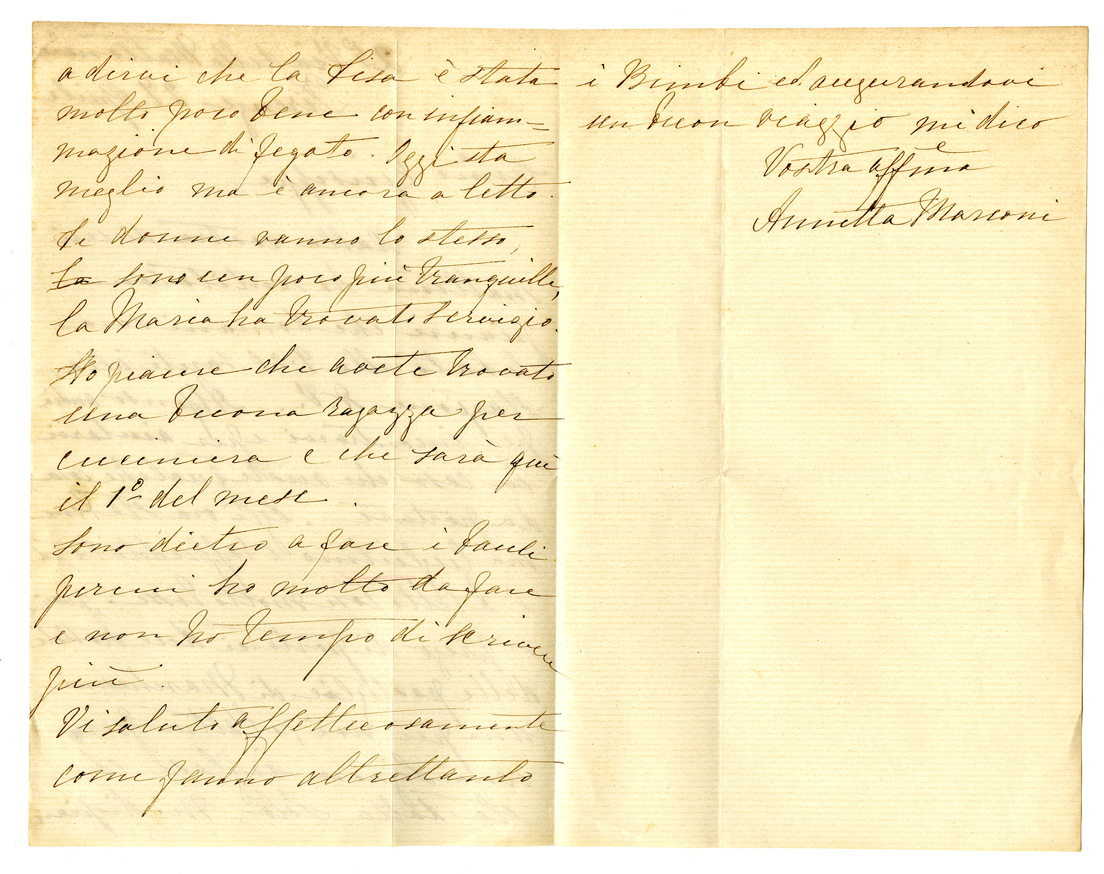 a dirvi che la Lisa è stata
molto poco bene con infiam=
mazione di fegato. Oggi sta
meglio ma è ancora a letto.
Le donne vanno lo stesso,
la sono un poco più tranquille,
la Maria ha trovato servizio.
Ho piacere che avete trovato
una buona ragazza per
cuciniera e che sarà quì
il 1º del mese.
Sono dietro a fare i bauli
percui ho molto da fare
e non ho tempo di scrivere
più.
Vi saluto affettuosamente
come fanno altrettanto
i Bimbi ed augurandovi
un buon viaggio mi dico
Vostra affma
Annetta Marconi